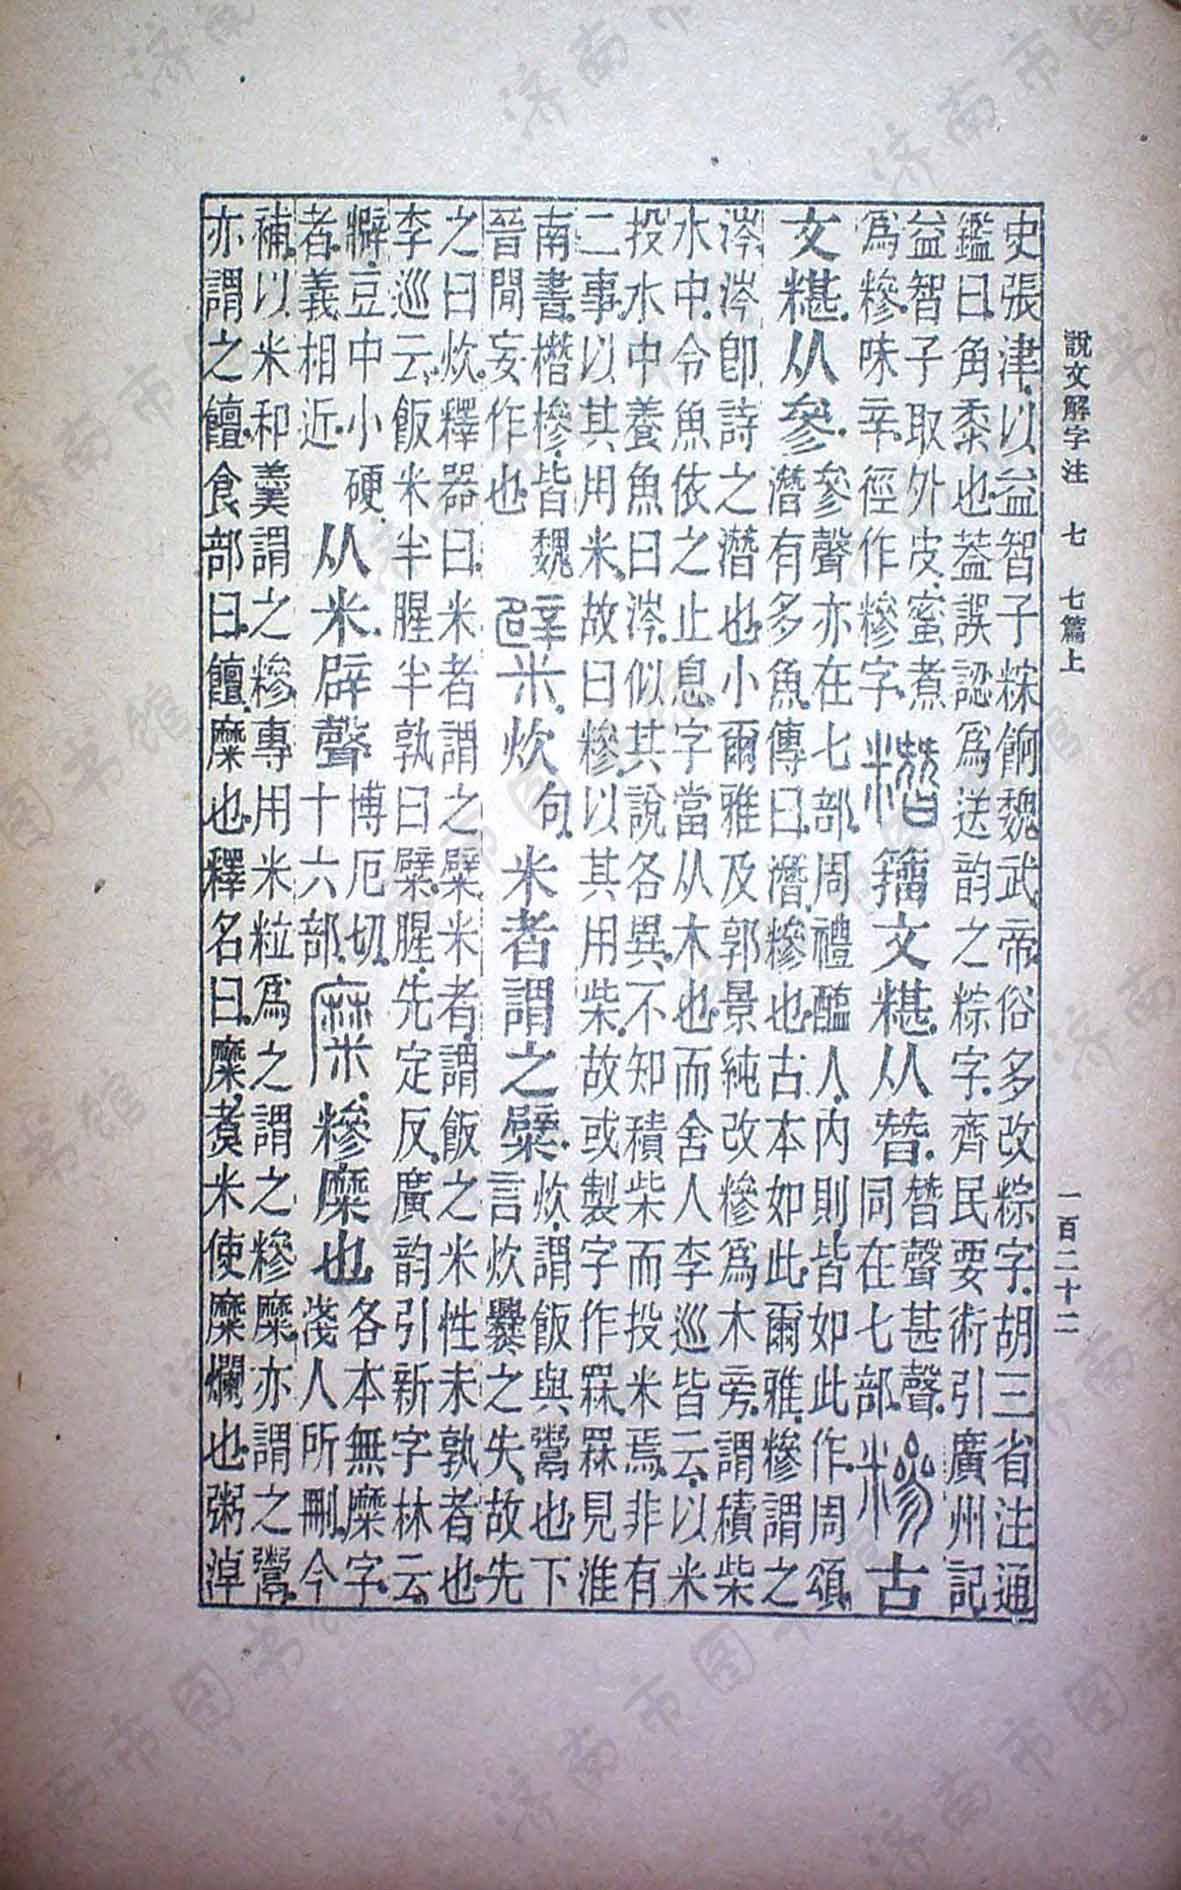 說文解字注　七　七篇上　一百二十二
史張津以益智子粽餉魏武帝俗多改粽字胡三省注通
鑑曰角黍也葢誤認爲送韵之粽字齊民要術引廣州記
益智子取外皮蜜煮
爲糝味辛徑作糝字
籒文糂从朁
朁聲甚聲
同在七部
糝古
文糂从參
參聲亦在七部周禮醢人內則皆如此作周頌
潛有多魚傳曰潛糝也古本如此爾雅糝謂之
涔涔卽詩之潛也小爾雅及郭景純改糝爲木旁謂積柴
水中令魚依之止息字當从木也而舍人李巡皆云以米
投水中養魚曰涔似其說各異不知積柴而投米焉非有
二事以其用米故曰糝以其用柴故或製字作罧罧見淮
南書橬槮皆魏
晉閒妄作也
糪炊
句
米者謂之糪
炊謂飯與鬻也下
言炊爨之失故先
之曰炊釋器曰米者謂之糪米者謂飯之米性未孰者也
李巡云飯米半腥半孰曰糪腥先定反廣韵引新字林云
豆中小硬
者義相近
从米辟聲
博厄切
十六部
糜糝糜也
各本無糜字
淺人所刪今
補以米和羹謂之糝專用米粒爲之謂之糝糜亦謂之鬻
亦謂之饘食部曰饘糜也釋名曰糜煮米使糜爛也粥淖